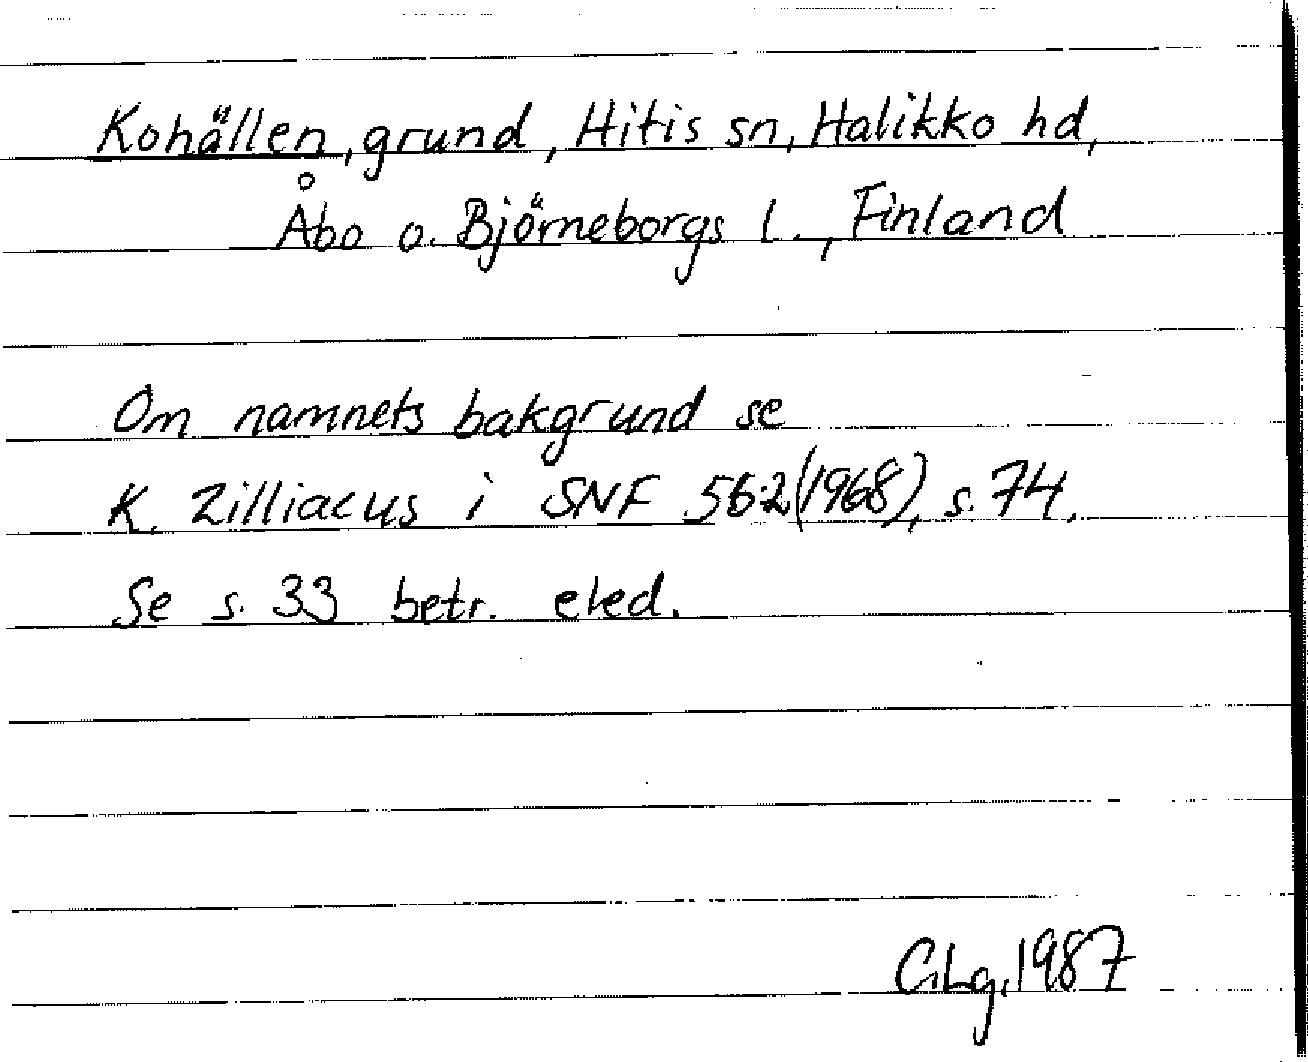 Kohällen, grund, Hitis sn, Halikko hd,
Åbo o. Björneborgs l., Finland
Om namnets bakgrund se
K. Zilliacus i SNF 56:2 (1968), s. 74.
Se s. 33 betr. eled.
G.Lg. 1987